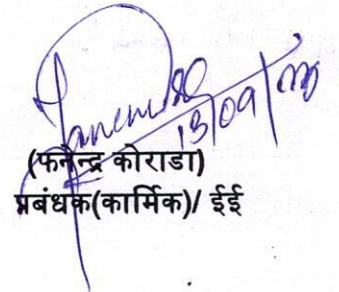 13/09/
(फनेन्द्र कोराडा)
प्रबंधक(कार्मिक)/ ईई